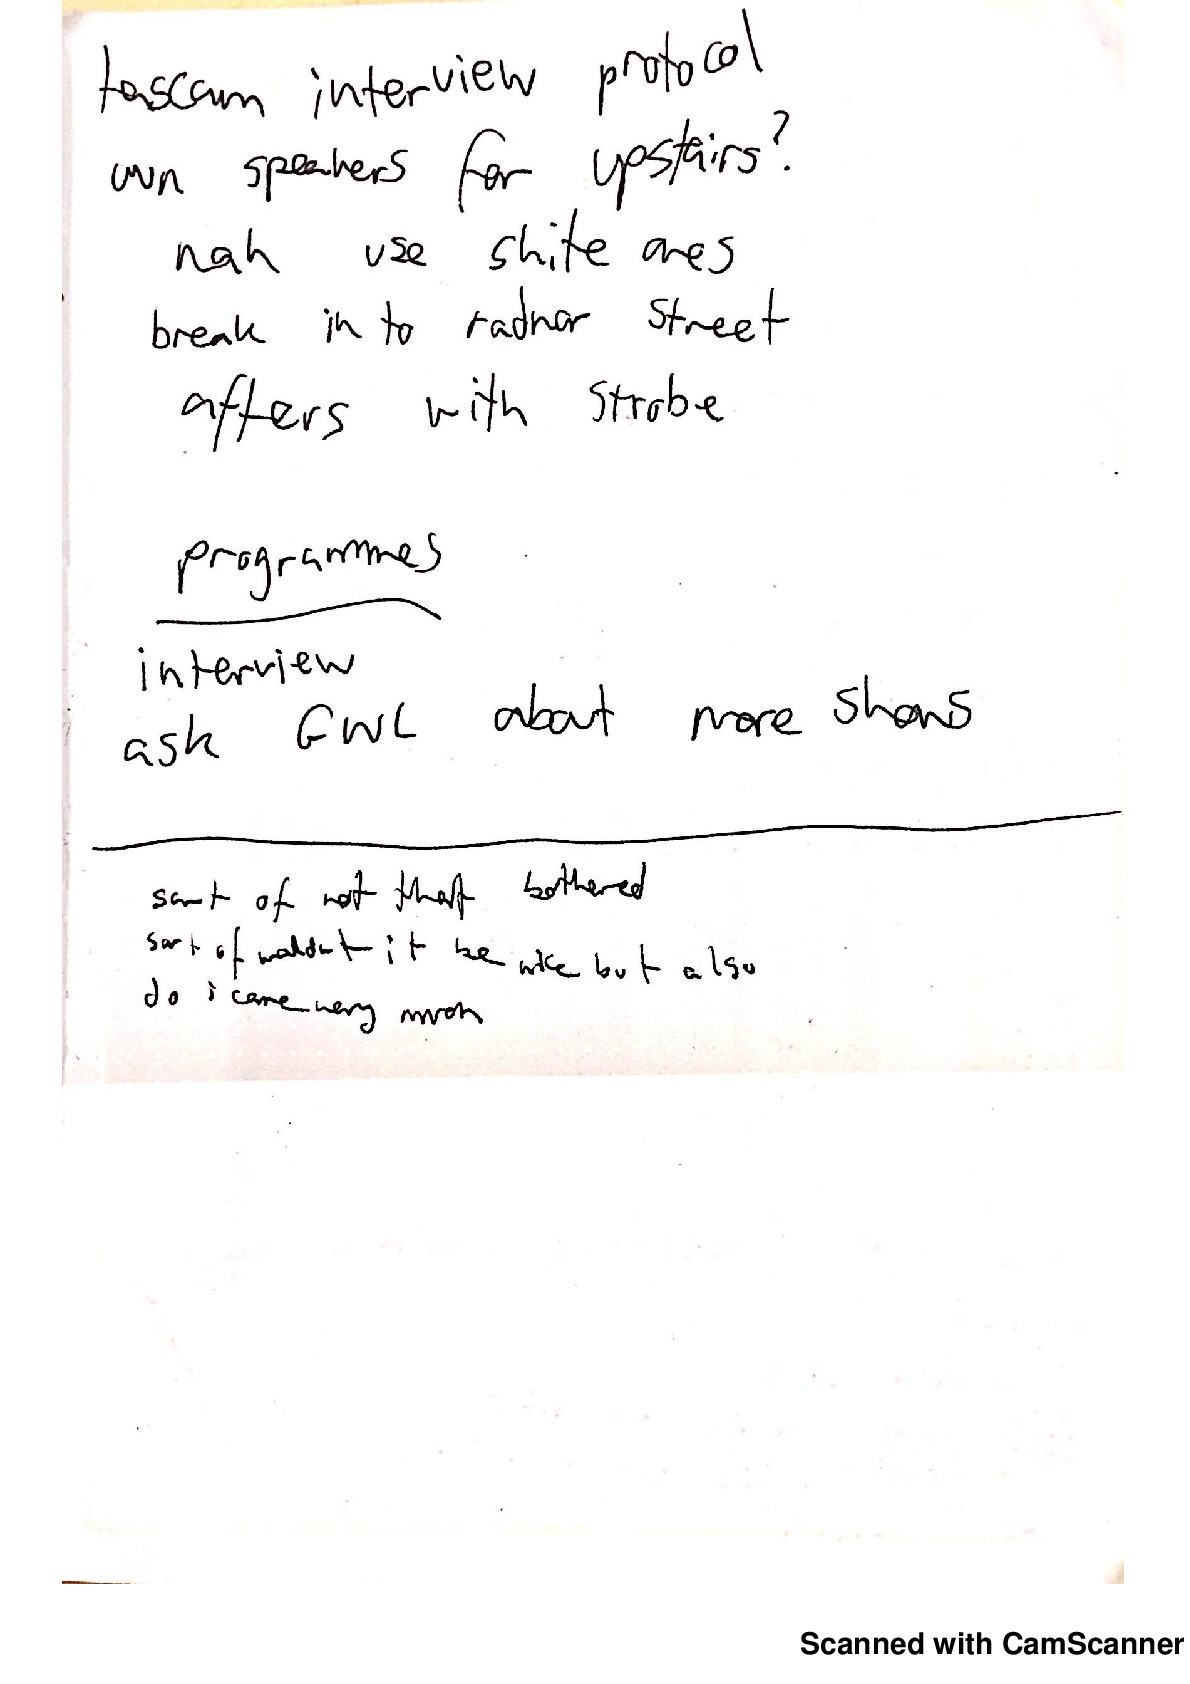 tascam interview protocol
own speakers for upstairs?
nah use shite ones
break into radnor street
afters with strobe
programmes
interview
ask GWL about more shows
sort of not that bothered
sort of wouldnt it be nice but also
do i care very much
Scanned with CamScanner